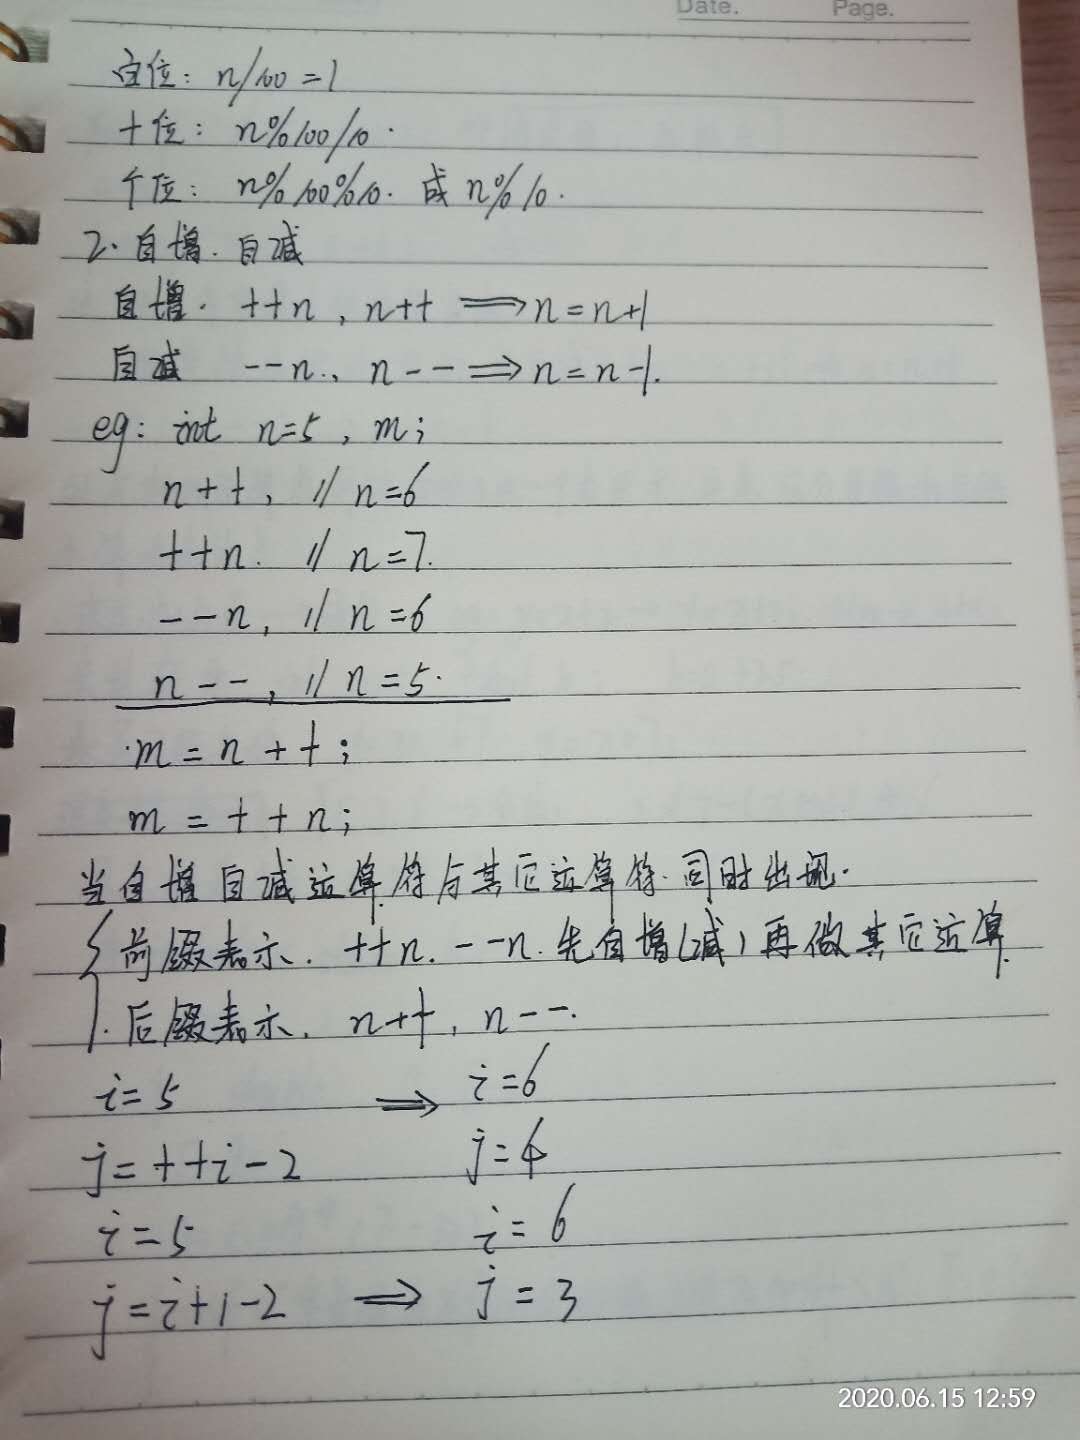 Date. Page.
百位: n/100 = 1
十位: n%100/10.
个位: n%100%10. 或 n%10.
2. 自增. 自减
自增. ++n, n++ ⟹ n = n+1
自减 --n., n-- ⟹ n = n-1.
eg: int n=5, m;
n++, // n=6
++n. // n=7.
--n, // n=6
n--, // n=5.
.m = n++;
m = ++n;
当自增自减运算符与其它运算符.同时出现.
{ 前缀表示. ++n. --n. 先自增(减)再做其它运算.
. 后缀表示. n++, n--.
i=5 ⟹ i=6
j=++i-2 j=4
i=5 i=6
j=i+1-2 ⟹ j=3
2020.06.15 12:59